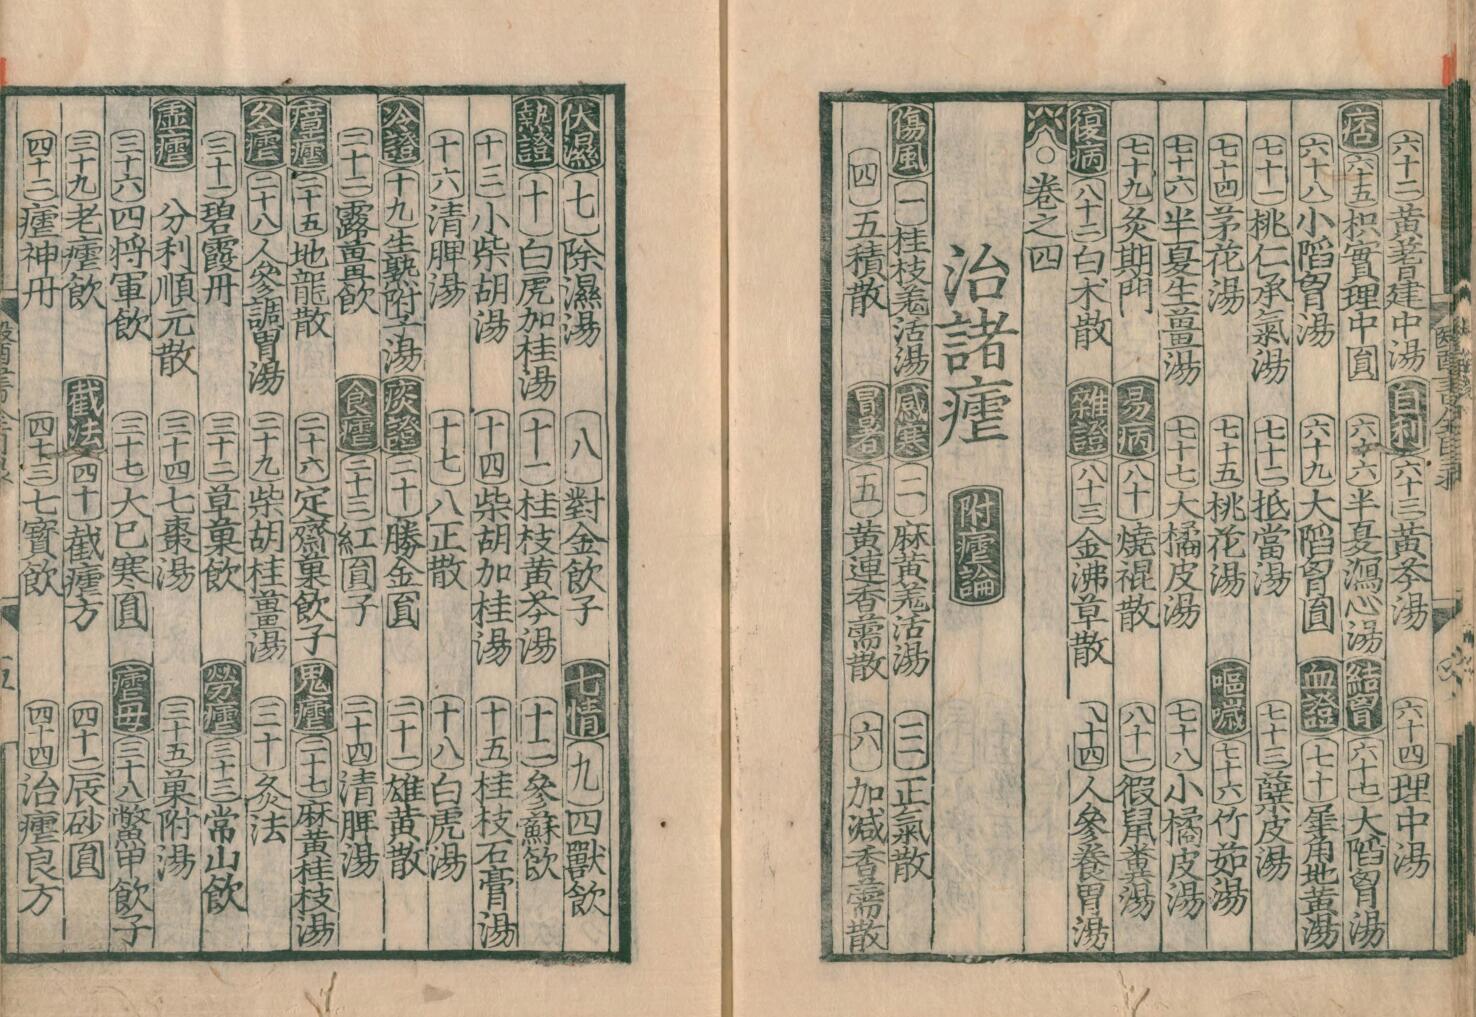 六十二黄耆建中湯 自利 六十三黄芩湯 六十四理中湯
痞 六十五枳實理中圓 六十六半夏瀉心湯 結胷 六十七大陷胷湯
六十八小陷胷湯 六十九大陷胷圓 血證 七十犀角地黄湯
七十一桃仁承氣湯 七十二抵當湯 七十三蘗皮湯
七十四茅花湯 七十五桃花湯 嘔噦 七十六竹茹湯
七十六半夏生薑湯 七十七大橘皮湯 七十八小橘皮湯
七十九灸期門 易病 八十燒裩散 八十一猳鼠糞湯
復病 八十二白术散 雜證 八十三金沸草散 八十四人參養胃湯
○卷之四
治諸瘧 附瘧論
傷風 一桂枝羗活湯 感寒 二麻黄羗活湯 三正氣散
四五積散 冒暑 五黄連香薷散 六加减香薷散
伏濕 七除濕湯 八對金飲子 七情 九四獸飲
熱證 十白虎加桂湯 十一桂枝黄芩湯 十二參蘇飲
十三小柴胡湯 十四柴胡加桂湯 十五桂枝石膏湯
十六清脾湯 十七八正散 十八白虎湯
冷證 十九生熟附子湯 痰證 二十勝金圓 二十一雄黄散
二十二露薑飲 食瘧 二十三紅圓子 二十四清脾湯
瘴瘧 二十五地龍散 二十六定齋菓飲子 鬼瘧 二十七麻黄桂枝湯
久瘧 二十八人參調胃湯 二十九柴胡桂薑湯 三十灸法
三十一碧霞丹 三十二草菓飲 勞瘧 三十三常山飲
虛瘧 分利順元散 三十四七棗湯 三十五菓附湯
三十六四將軍飲 三十七大巳寒圓 瘧母 三十八鱉甲飲子
三十九老瘧飲 截法 四十截瘧方 四十一辰砂圓
四十二瘧神丹 四十三七寳飲 四十四治瘧良方